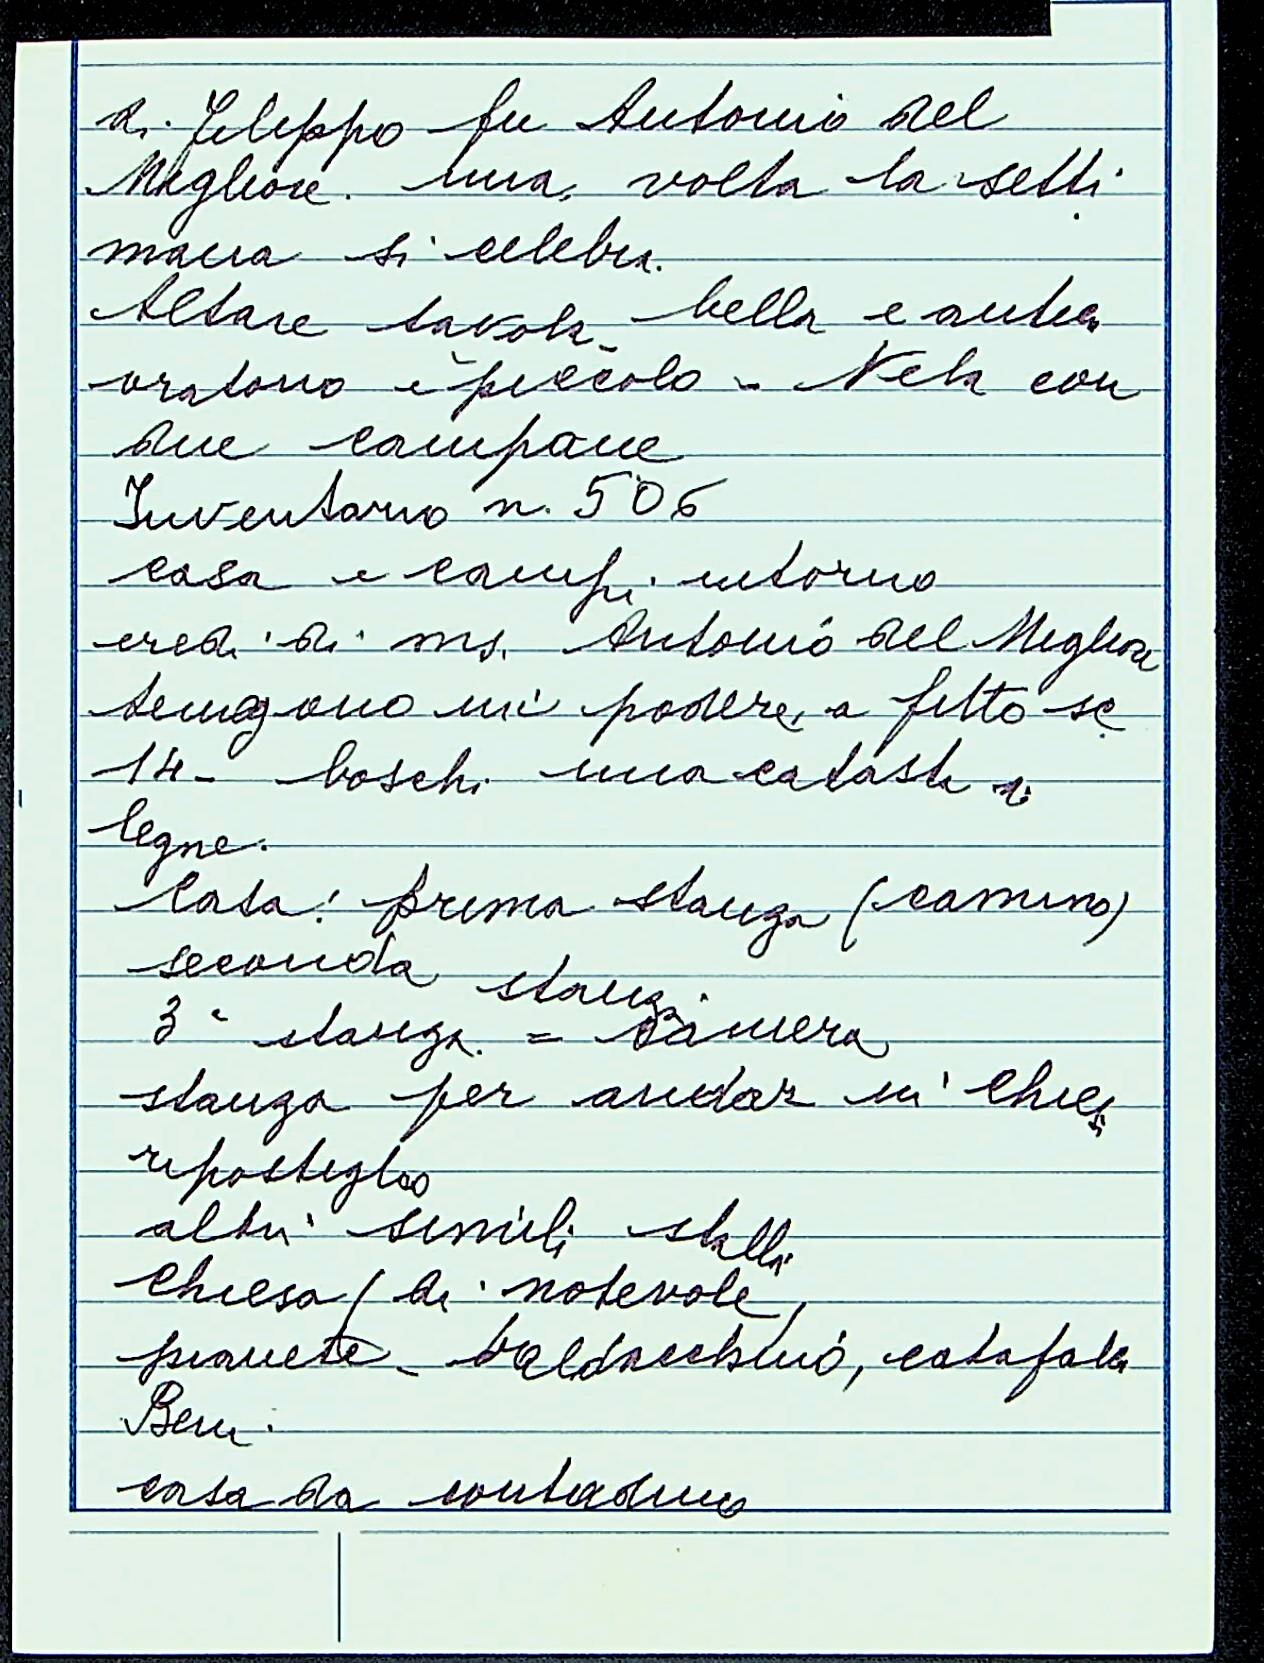 di Filippo fu Antonio del
Migliore. una volta la setti
mana si celebra.
Altare tavola bella e antica
oratorio è piccolo - Vela con
due campane
Inventario n. 506
casa e campi intorno
eredi di ms. Antonio del Migliore
tengono in podere, a fitto sc
14 - boschi una catasta di
legne.
Casa: prima stanza (camino)
seconda stanza
3ª stanza = camera
stanza per andar in chiesa
ripostiglio
altri simili stalla
Chiesa (di notevole,
pianete - baldacchino, catafalco
Beni.
casa da contadino